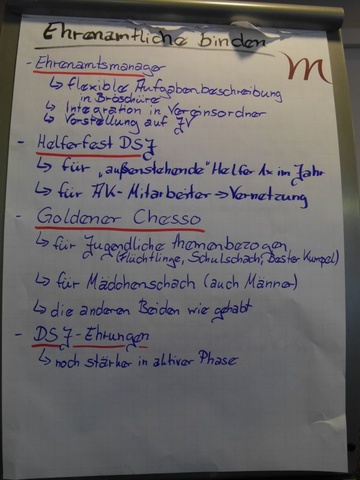 Ehrenamtliche binden
- Ehrenamtsmanager
↳ flexible Aufgabenbeschreibung
in Broschüre
↳ Integration in Vereinsordner
↳ Vorstellung auf JV
m
- Helferfest DSJ
↳ für „außenstehende" Helfer 1x im Jahr
↳ für AK-Mitarbeiter → Vernetzung
- Goldener Chesso
↳ für Jugendliche themenbezogen,
(Flüchtlinge, Schulschach, bester Kumpel)
↳ für Mädchenschach (auch Männer)
↳ die anderen Beiden wie gehabt
- DSJ-Ehrungen
↳ noch stärker in aktiver Phase